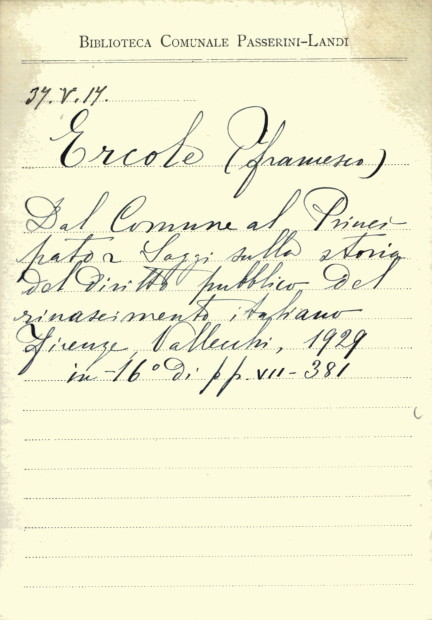 BIBLIOTECA COMUNALE PASSERINI-LANDI
37.V.17.
Ercole (Francesco)
Dal Comune al Princi-
pato: Saggi sulla storia
del diritto pubblico del
rinascimento italiano
Firenze, Vallecchi, 1929
in-16° di pp. VII-381